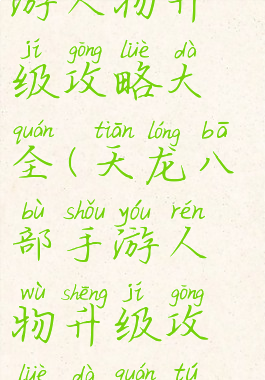 游人物升
jí gōng lüè dà
级攻略大
quán tiān lóng bā
全(天龙八
bù shǒu yóu rén
部手游人
wù shēng jí gōng
物升级攻
lüè dà quán tú